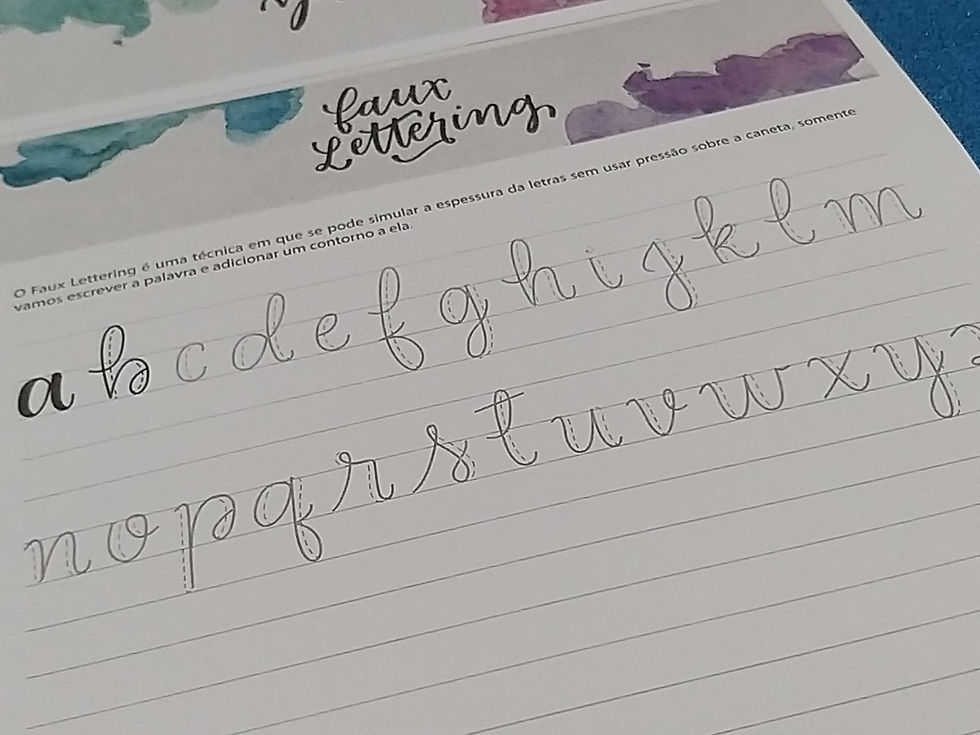 faux
Lettering
O Faux Lettering é uma técnica em que se pode simular a espessura da letras sem usar pressão sobre a caneta, somente
vamos escrever a palavra e adicionar um contorno a ela.
a b c d e f g h i j k l m
n o p q r s t u v w x y